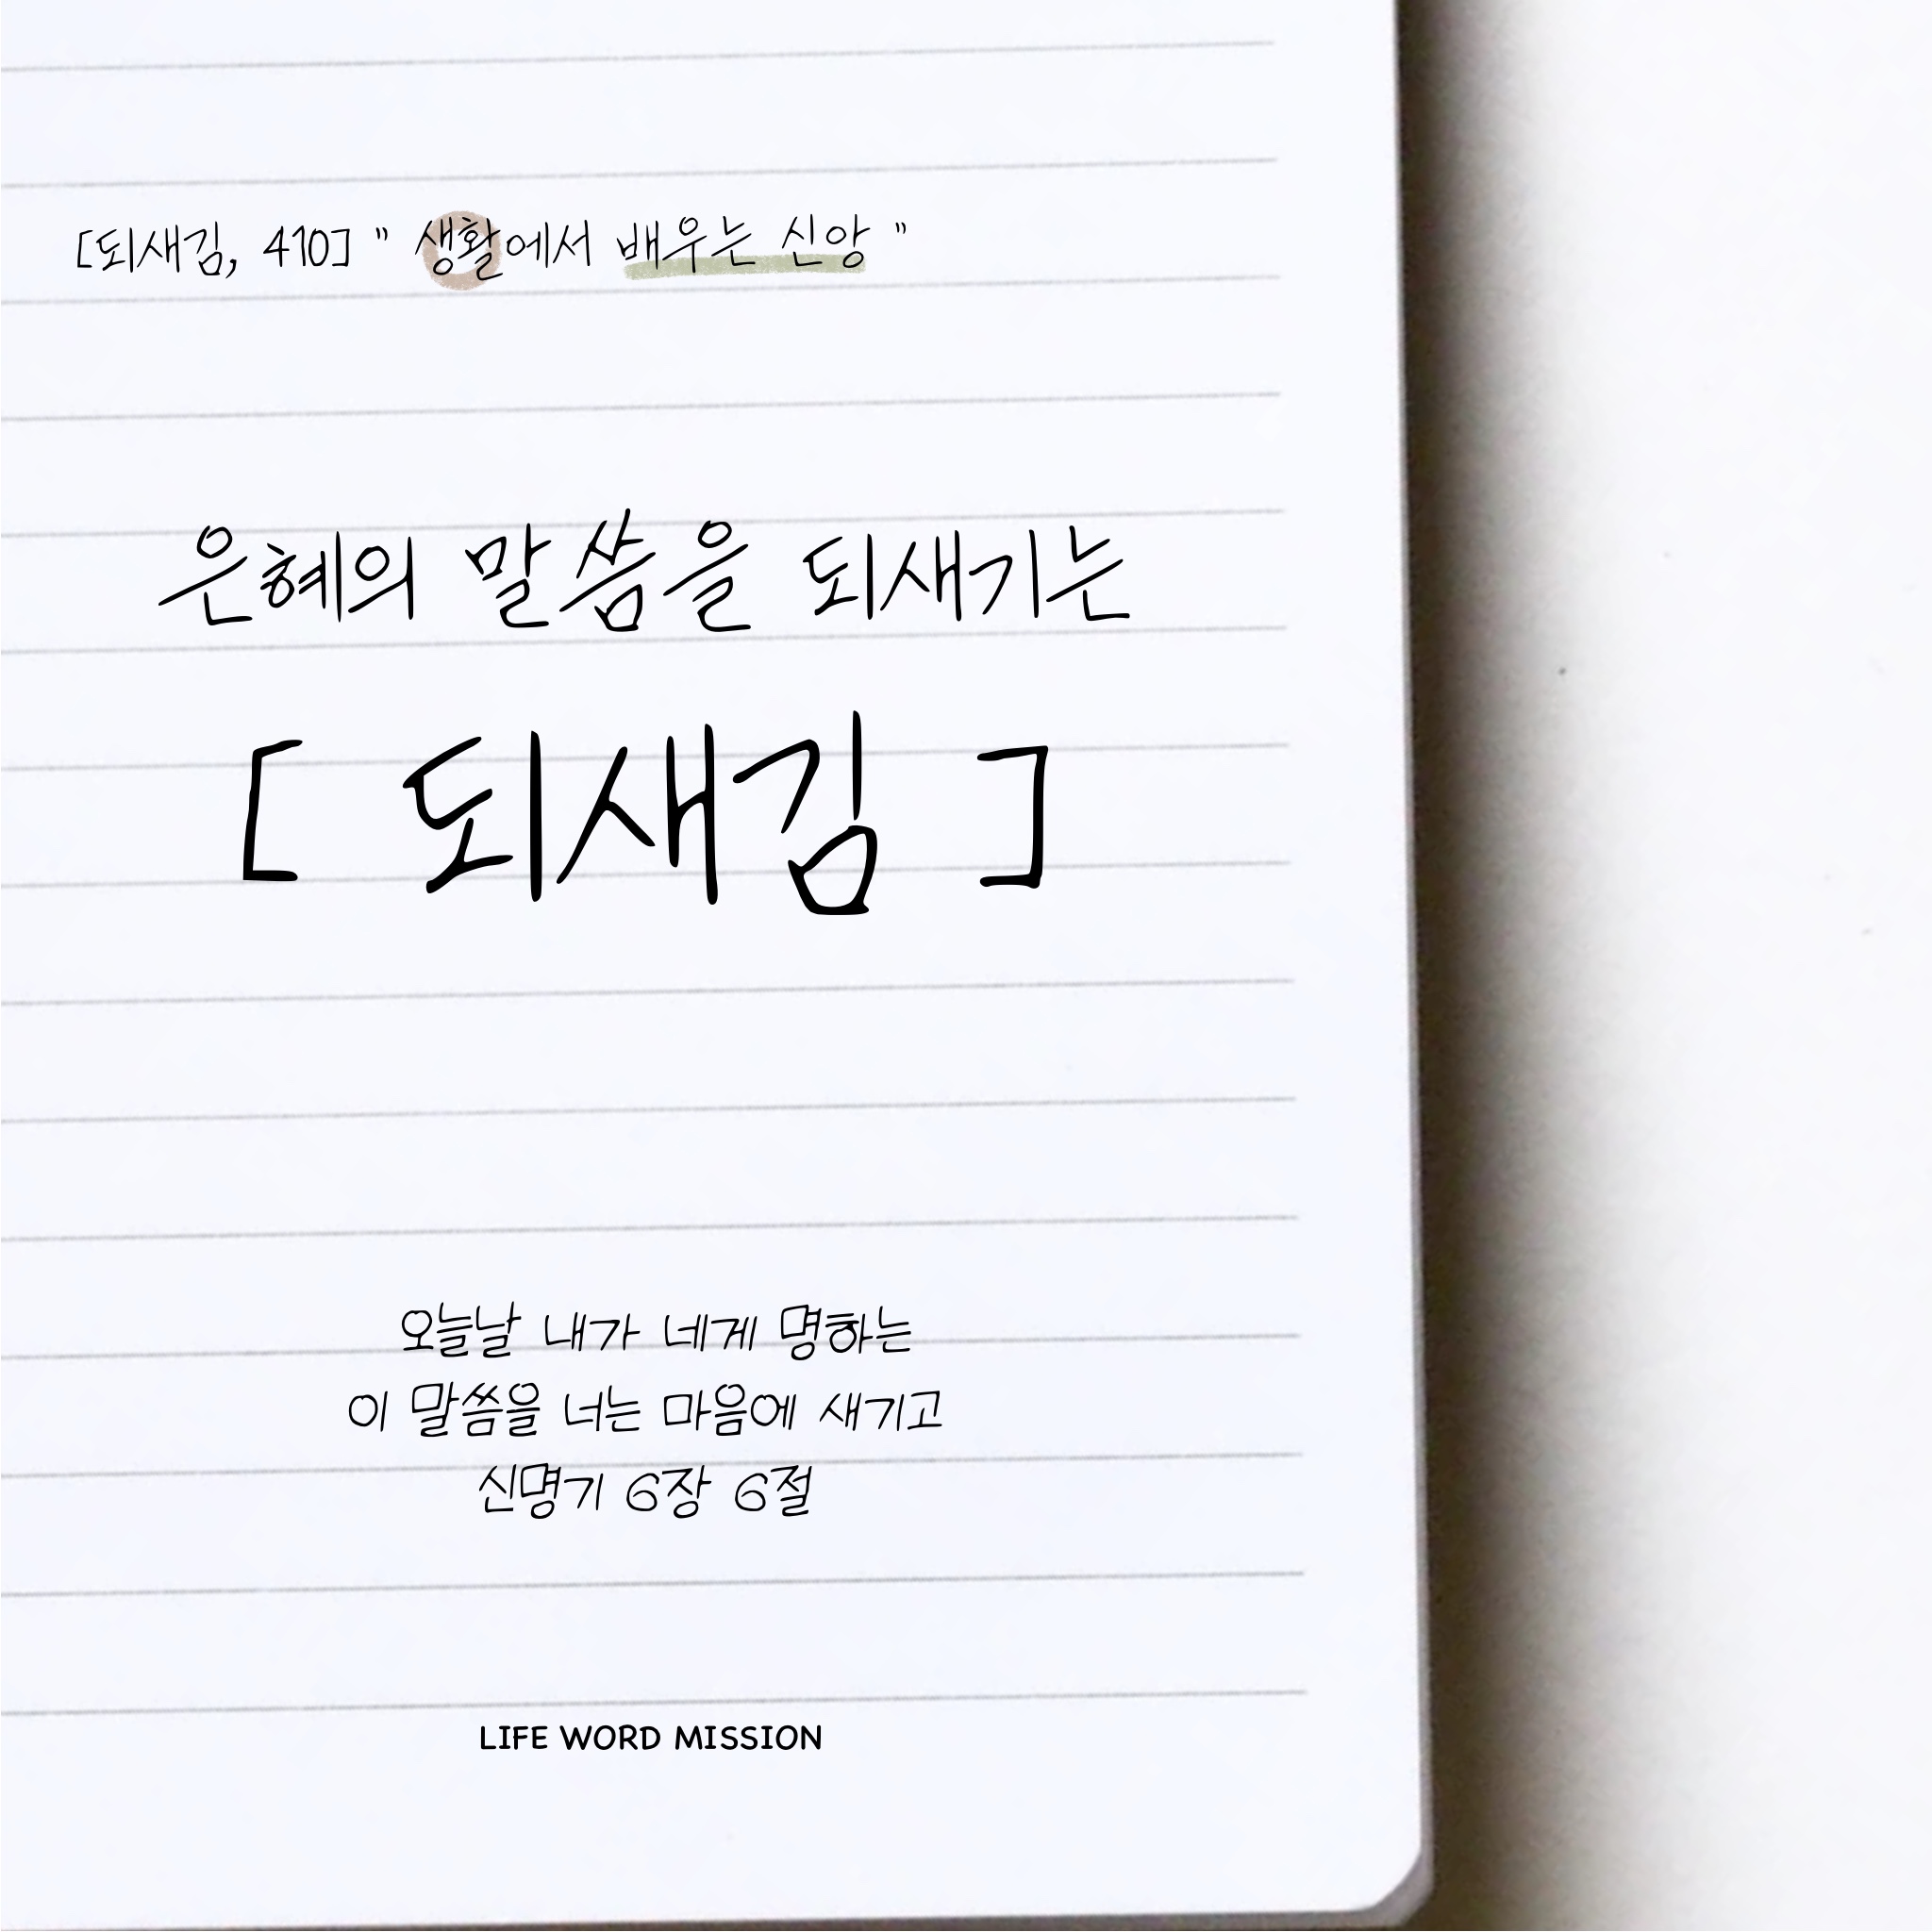 [되새김, 410] " 생활에서 배우는 신앙 "
은혜의 말씀을 되새기는
[ 되새김 ]
오늘날 내가 네게 명하는
이 말씀을 너는 마음에 새기고
신명기 6장 6절
LIFE WORD MISSION